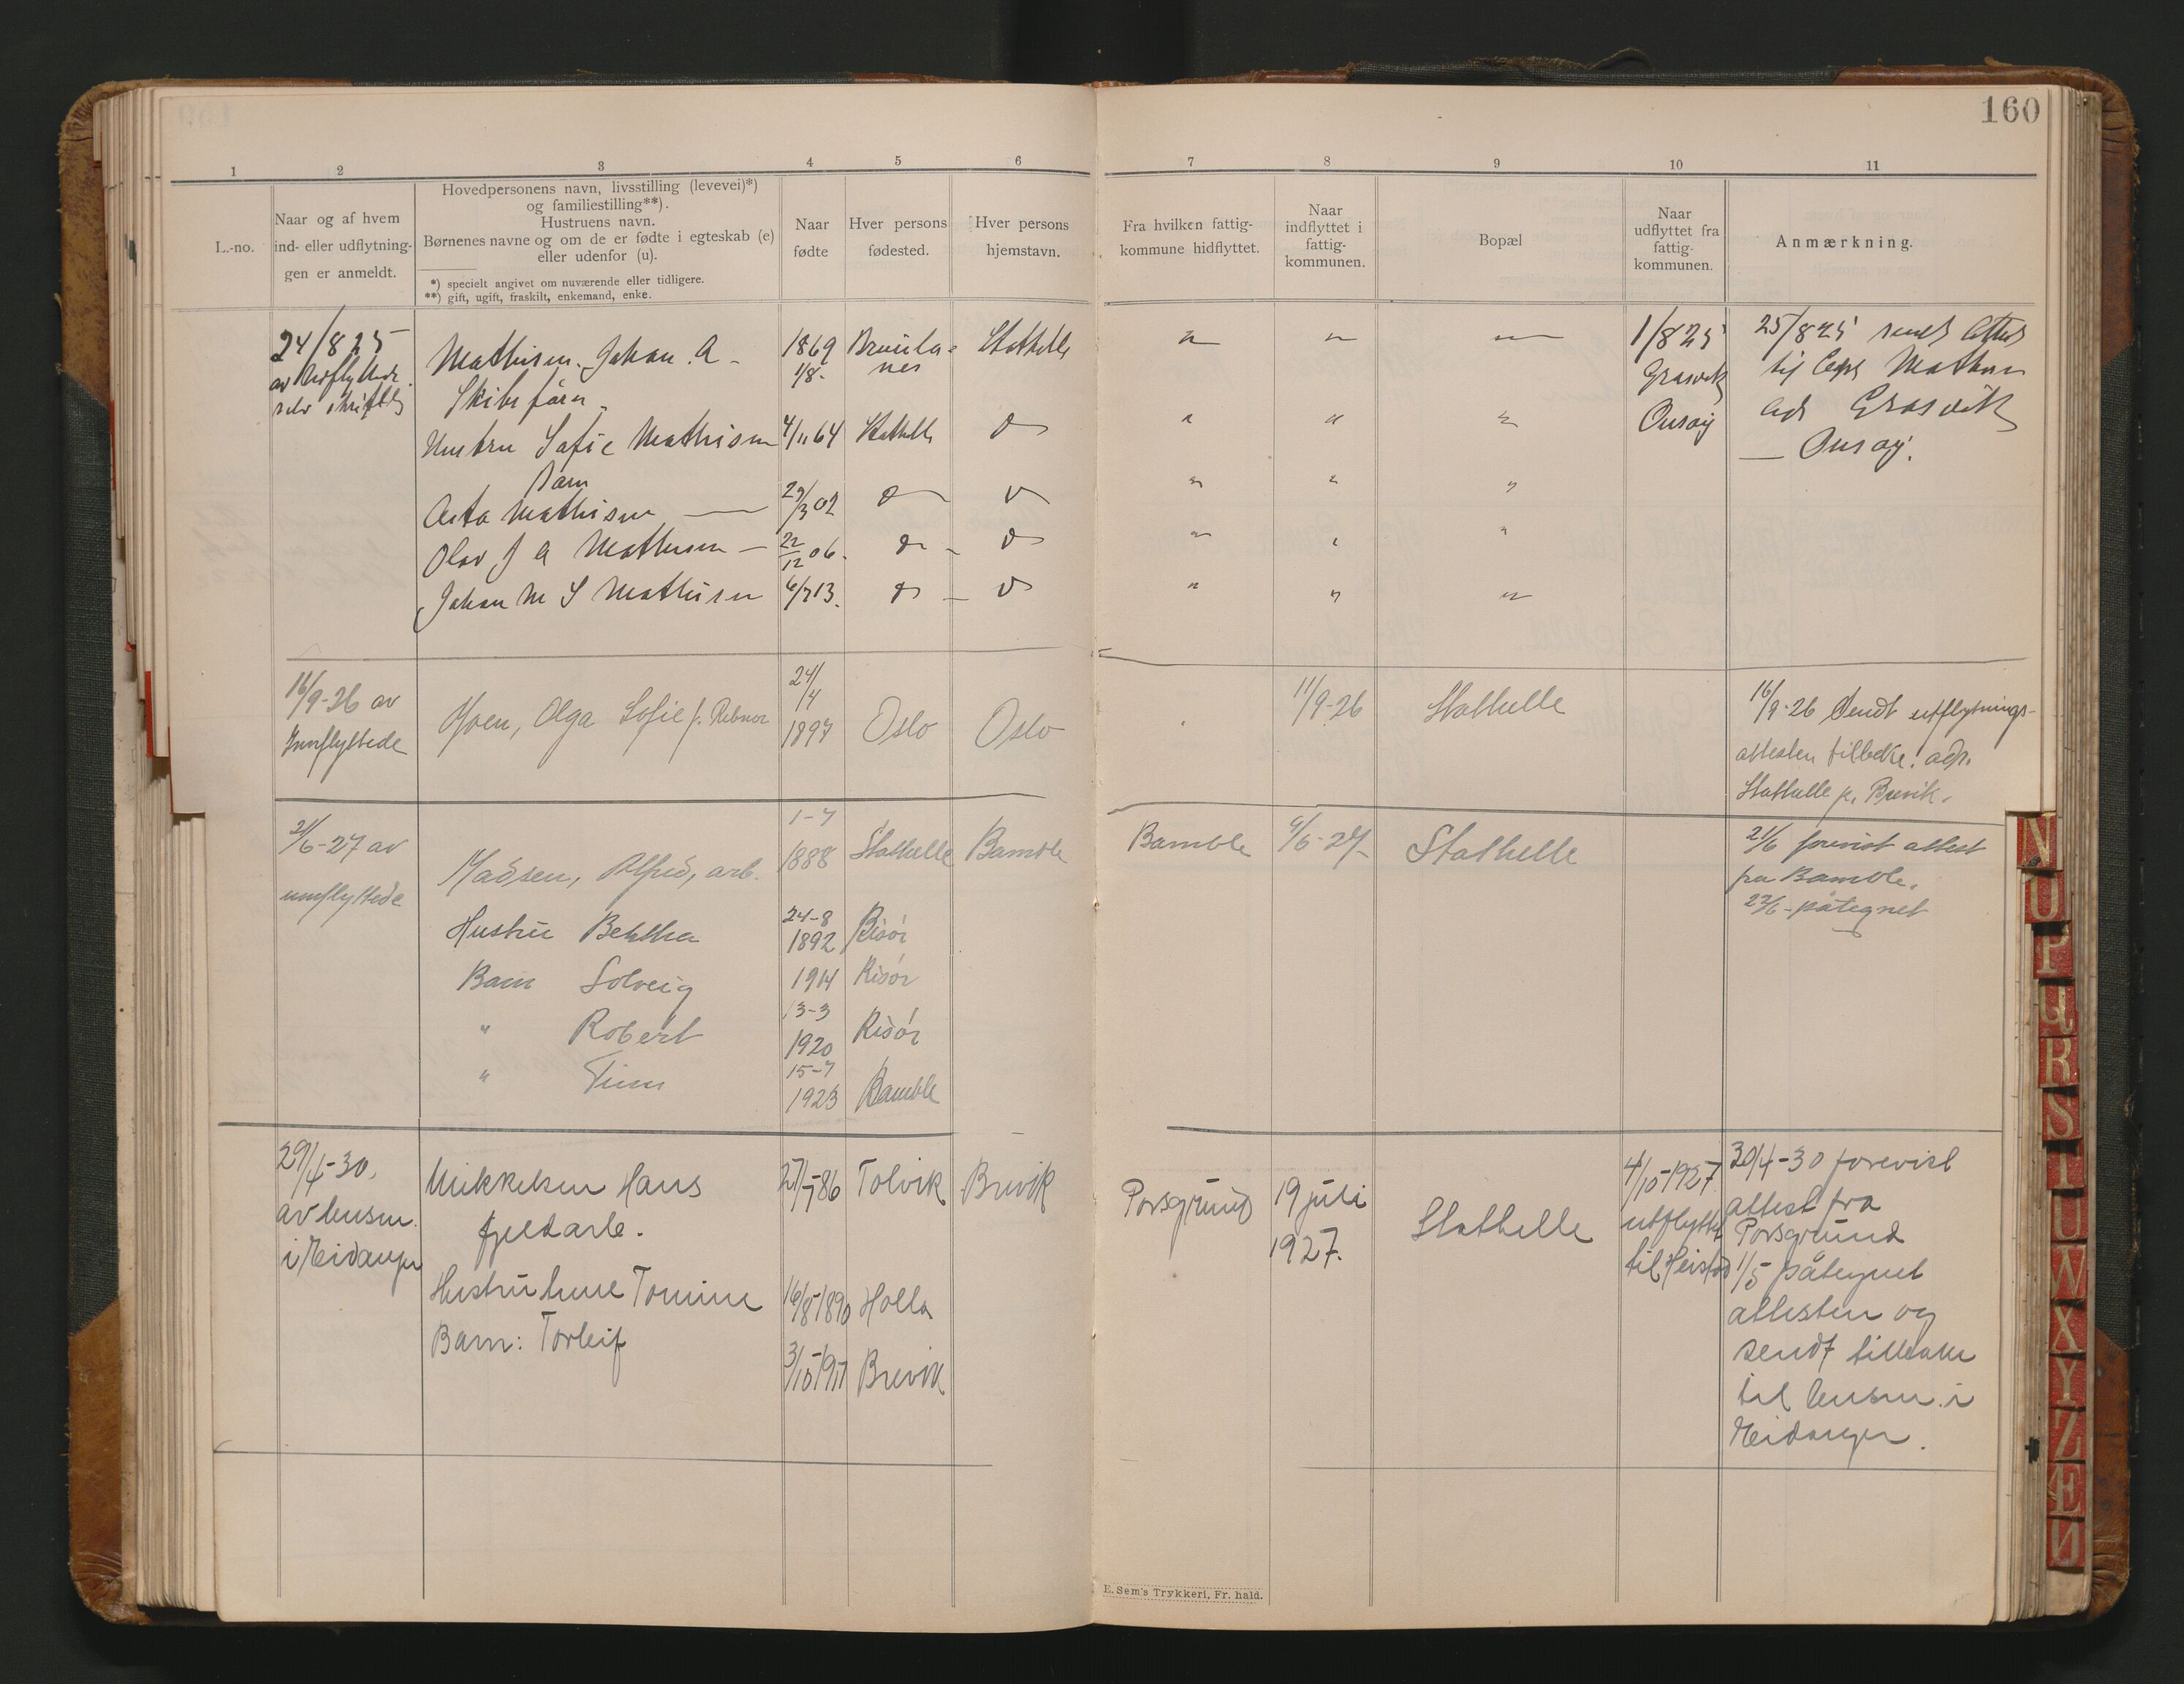 160
1 2 3 4 5 6 7 8 9 10 11
L.-no.
Naar og af hvem
ind- eller udflytnin-
gen er anmeldt.
Hovedpersonens navn, livsstilling (levevei)*)
og familiestilling**).
Hustruens navn.
Børnenes navne og om de er fødte i egteskab (e)
eller udenfor (u).
*) specielt angivet om nuværende eller tidligere.
**) gift, ugift, fraskilt, enkemand, enke.
Naar
fødte
Hver persons
fødested.
Hver persons
hjemstavn.
Fra hvilken fattig-
kommune hidflyttet.
Naar
indflyttet i
fattig-
kommunen.
Bopæl
Naar
udflyttet fra
fattig-
kommunen.
Anmærkning.
24/8 25
av Udflyttede
selv
Mathisen Johan. A -
Skibsfører
1869
1/8-
Brunla-
nes
Stathelle
1/8 25
Gressvik
Onsøy
25/8 25 sendt attest
til Capt Mathisen
adr Gressvik
Onsøy.
Hustru Sofie Mathisen 4/11 64 Stathelle
Barn
Asta Mathisen 29/3 02
Olav J A Mathisen - 22/12 06.
Johan M S Mathisen 6/7 13.
16/9-26 av
Innflyttede
Olga Sofie f.
24/
/4
1897
Oslo
Oslo
11/9-26
Stathelle
16/9-26 Sendt utflytnings-
attesten tilbake. adr.
Stathelle p. Brevik.
21/6-27 av
innflyttede
Madsen, Alfred, arb.
1-7
1888
Stathelle
Bamble
Bamble
9/6-27
Stathelle
21/6 forevist attest
fra Bamble.
22/6- påtegnet
Hustru
24-8
1892
Risør
Barn Solveig 1914 Risør
" Robert
13-3
1920
Risør
" Finn
15-7
1923
Bamble
29/4-30.
av lensm.
i Eidanger
Mikkelsen Hans
fjeldarb.
27/7-86
Tolvik
Brevik
Porsgrund
19 juli
1927.
Stathelle
4/10-1927
utflyttet
til Heistad
30/4-30 forevist
attest fra
Porsgrund
1/5 påtegnet
attesten og
sendt tilbake
til lensm. i
Eidanger.
Hustru Tomine 16/8-1890 Holla
Barn: Torleif
Brevik
E. Sem's Trykkeri, Fr. hald.
N
O
P
Q
R
S
T
U
W
X
Y
Z
Æ
Ø